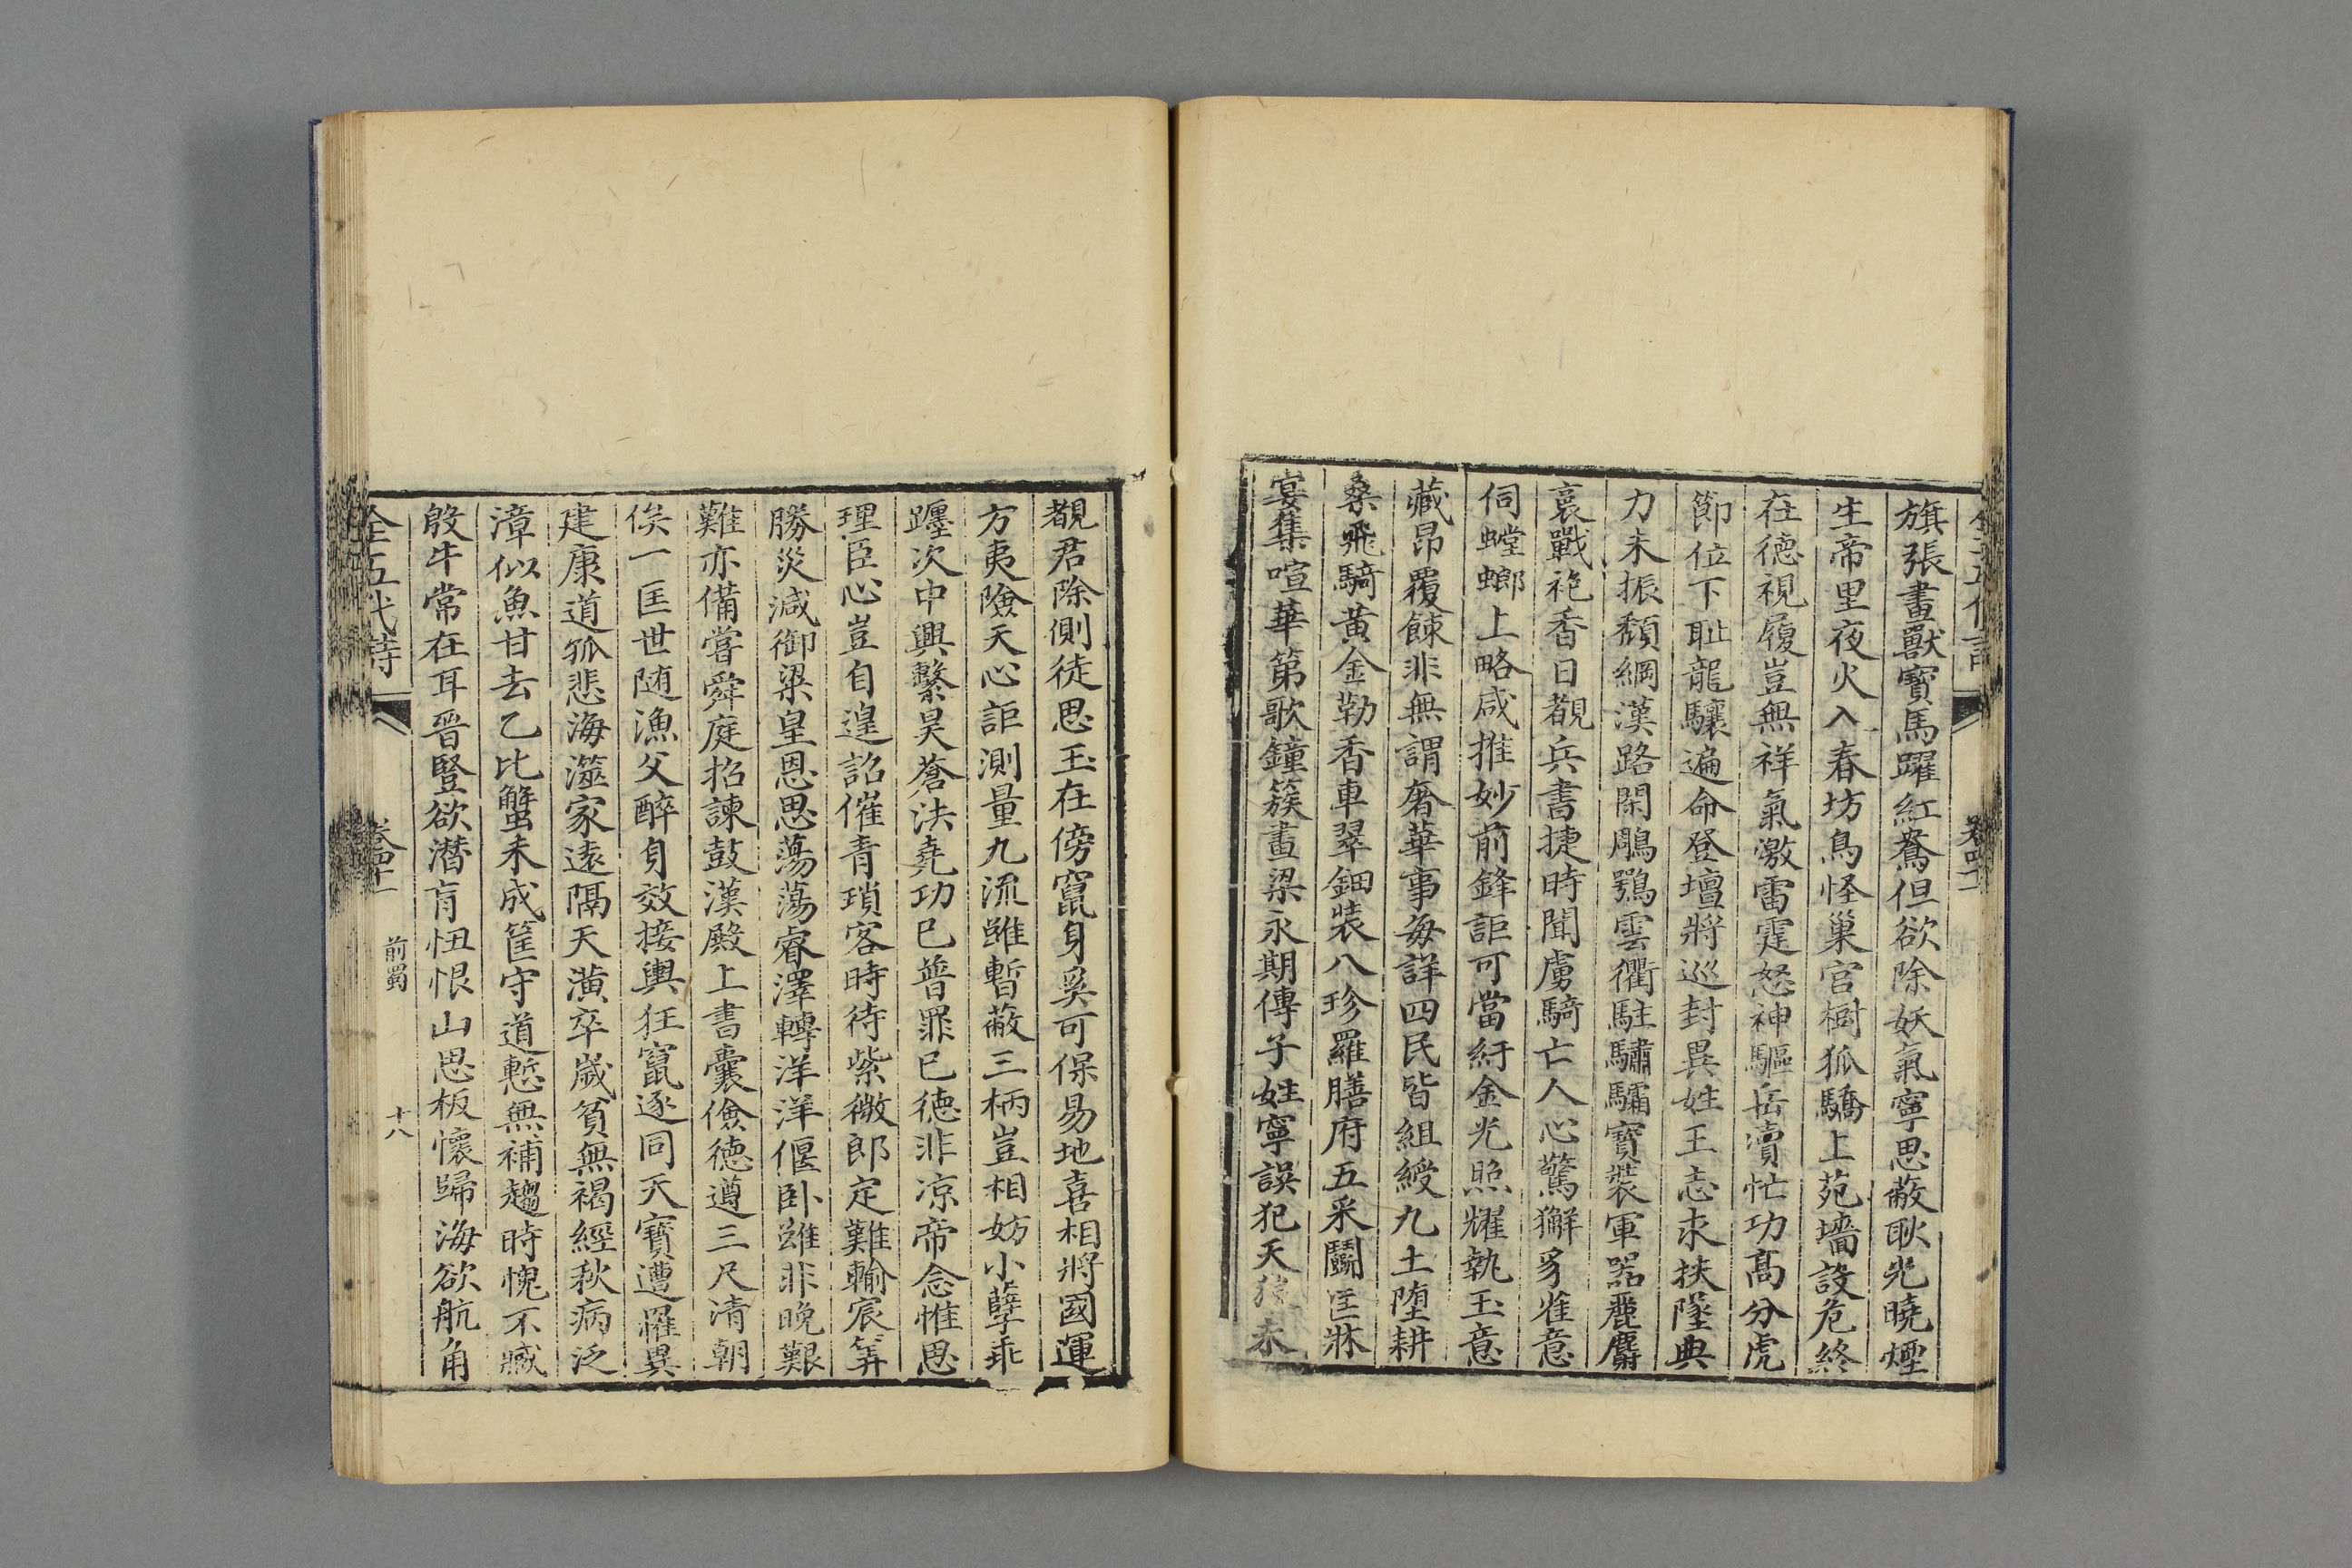 旗張畫獸寶馬躍紅鴦但欲除妖氣寧思蔽耿光曉煙
生帝里夜火入春坊鳥怪巢宮樹狐驕上苑墻設危終
在德視履豈無祥氣激雷霆怒神驅岳瀆忙功高分虎
節位下耻龍驤遍命登壇將巡封異姓王志求扶墜典
力未振頽綱漢路閑鵰鶚雲衢駐驌驦寶裝軍器麗麝
裛戰袍香日覩兵書捷時聞虜騎亡人心驚獬豸雀意
伺螳螂上略咸推妙前鋒詎可當紆金光照耀執玉意
藏昂覆餗非無謂奢華事每詳四民皆組綬九土堕耕
桑飛騎黃金勒香車翠鈿裝八珍羅膳府五采鬬匡牀
宴集喧華第歌鐘簇畫梁永期傳子姓寧誤犯天
覩君除側徒思玉在傍竄身奚可保易地喜相將國運
方夷險天心詎測量九流雖暫蔽三柄豈相妨小孽乖
躔次中興繫昊蒼法堯功已普罪已德非凉帝念惟思
理臣心豈自遑詔催青瑣客時待紫微郎定難輸宸筭
勝災減御梁皇恩思蕩蕩睿澤轉洋洋偃卧雖非晚艱
難亦備嘗舜庭招諫鼓漢殿上書囊儉德遵三尺清朝
俟一匡世随漁父醉身效接輿狂竄逐同天寶遭罹異
建康道孤悲海澨家遠隔天潢卒歲貧無褐經秋病泛
漳似魚甘去乙比蟹未成筐守道慙無補趨時愧不臧
殷牛常在耳晉豎欲潜肓忸恨山思板懷歸海欲航角
全五代詩
卷四十一
前蜀
十八